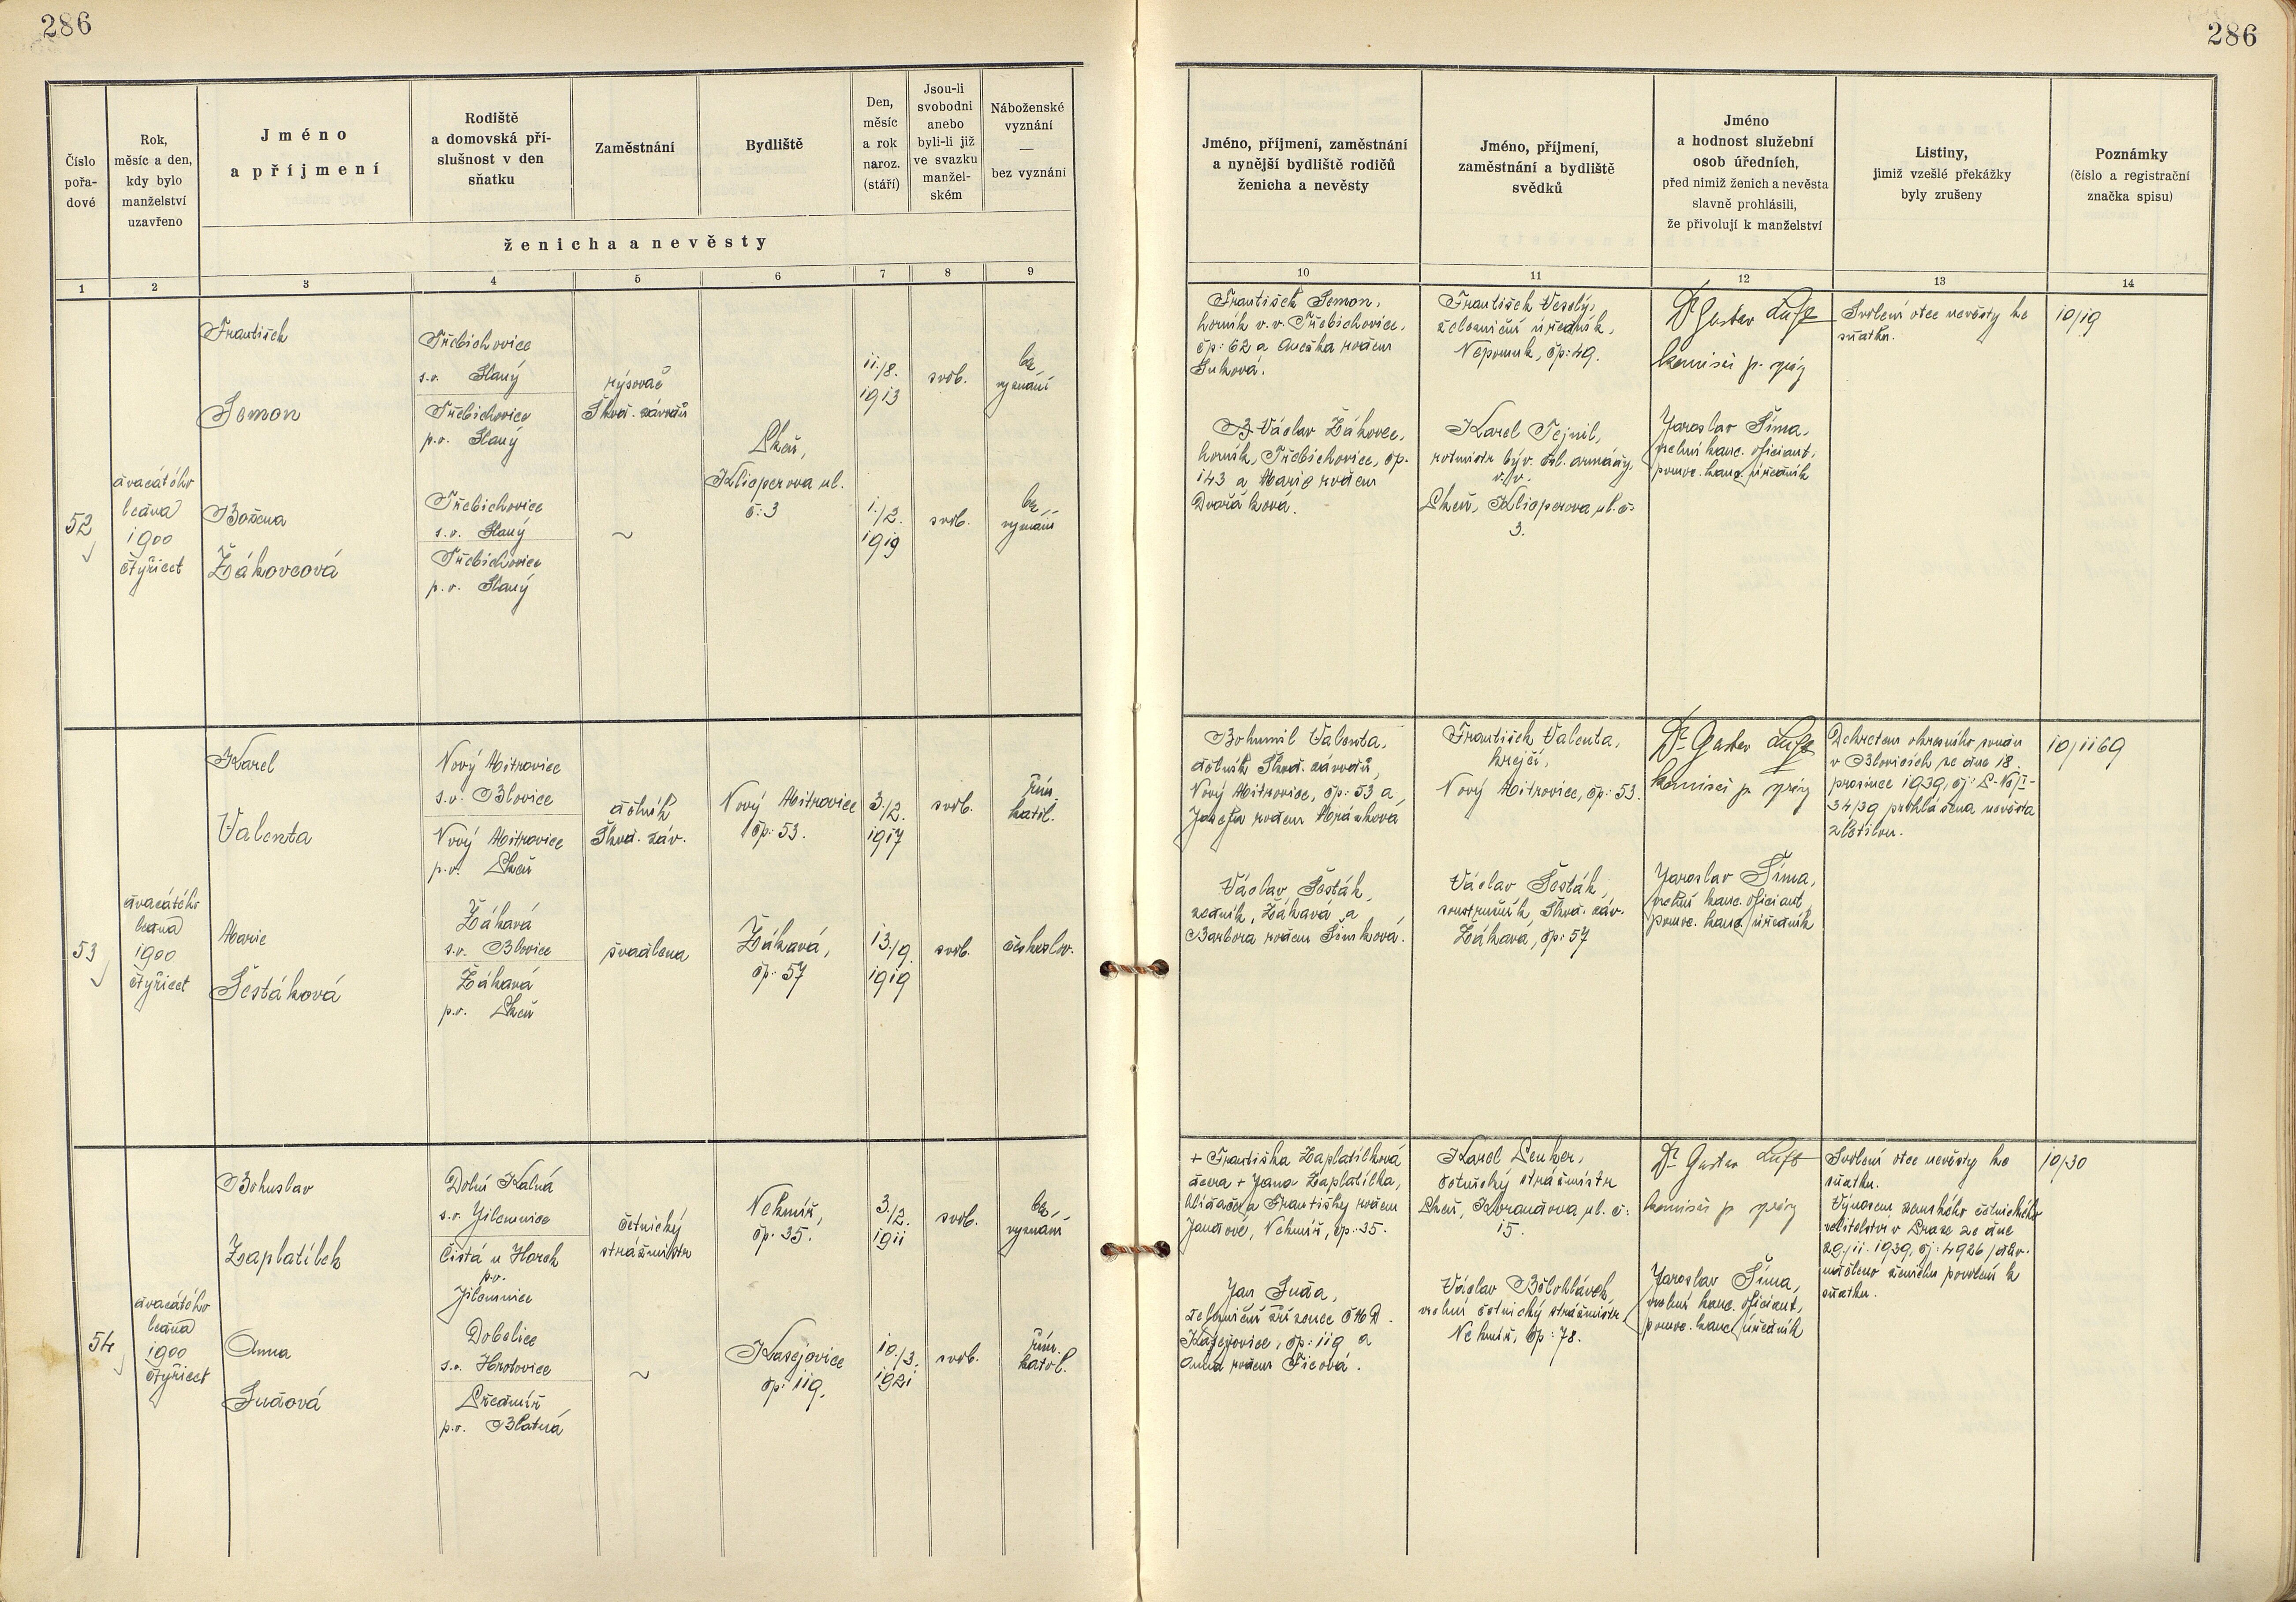 286
286
Číslo
pořa-
dové
Rok,
měsíc a den,
kdy bylo
manželství
uzavřeno
Jméno
a příjmení
Rodiště
a domovská pří-
slušnost v den
sňatku
Zaměstnání
Bydliště
Den,
měsíc
a rok
naroz.
(stáří)
Jsou-li
svobodni
anebo
byli-li již
ve svazku
manžel-
ském
Náboženské
vyznání
—
bez vyznání
ženicha a nevěsty
Jméno, příjmení, zaměstnání
a nynější bydliště rodičů
ženicha a nevěsty
Jméno, příjmení,
zaměstnání a bydliště
svědků
Jméno
a hodnost služební
osob úředních,
před nimiž ženich a nevěsta
slavně prohlásili,
že přivolují k manželství
Listiny,
jimiž vzešlé překážky
byly zrušeny
Poznámky
(číslo a registrační
značka spisu)
1 2 3 4 5 6 7 8 9
10 11 12 13 14
52
dvacátého
ledna
1900
čtyřicet
František
Semon
Třebichovice
s.o. Slaný
Třebichovice
p.o. Slaný
rýsovač
Škod. závodů
Plzeň,
Klicperova ul.
č: 3
11./8.
1913
svob.
bez
vyznání
Božena
Žákovcová
Třebichovice
s.o. Slaný
Třebichovice
p.o. Slaný
~
1./2.
1919
svob.
bez
vyznání
František Semon,
horník v.v. Třebichovice,
čp: 62 a Anežka rodem
Suková.
Václav Žákovec,
horník, Třebichovice, čp.
143 a Marie rodem
Dvořáková.
František Veselý,
železniční úředník,
Nepomuk, čp: 49.
Karel Tejnil,
rotmistr býv. čsl. armády
v.v.
Plzeň, Klicperova ul. č:
3.
Dr Gustav Luft
komisař p. správy
Jaroslav Šíma,
vrchní kanc. oficiant,
pomoc. kanc. úředník
Svolení otce nevěsty ke
sňatku.
10/19
53
dvacátého
ledna
1900
čtyřicet
Karel
Valenta
Nový Mitrovice
s.o. Blovice
Nový Mitrovice
p.o. Plzeň
dělník
Škod. záv.
Nový Mitrovice
čp: 53.
3./2.
1917
svob.
řím.
katol.
Marie
Šestáková
Žákavá
s.o. Blovice
Žákavá
p.o. Plzeň
švadlena
Žákavá,
čp: 57
13./9.
1919
svob.
českoslov.
Bohumil Valenta,
dělník Škod. závodů,
Nový Mitrovice, čp: 53 a
Josefa rodem Mránkova
Václav Šesták,
zedník, Žákavá a
Barbora rodem Šimková.
František Valenta,
krejčí,
Nový Mitrovice, čp: 53.
Václav Šesták,
soustružník, Škod. záv.
Žákavá, čp: 57
Dr Gustav Luft
komisař p. správy
Jaroslav Šíma,
vrchní kanc. oficiant,
pomoc. kanc. úředník
Dekretem okresního soudu
v Blovicích ze dne 18.
prosince 1939, čj: P-VI/I-
34/39 prohlášena nevěsta
zletilou.
10/1169
54
dvacátého
ledna
1900
čtyřicet
Bohuslav
Zaplatílek
Dolní Kalná
s.o. Jilemnice
Čistá u Horek
p.o.
Jilemnice
četnický
strážmistr
Nekmíř,
čp: 35.
3./2.
1911
svob.
bez
vyznání
Anna
Sudová
Dobelice
s.o. Hrotovice
Předmíř
p.o. Blatná
~
Kasejovice
čp: 119.
10./3.
1921
svob.
řím.
katol.
+ Františka Zaplatílková
dcera + Jana Zaplatílka,
hlídače a Františky rodem
Jandové, Nekmíř, čp: 35.
Jan Suda,
železniční zřízenec ČMD.
Kasejovice, čp: 119 a
Anna rodem Ticová.
Karel Penker,
četnický strážmistr
Plzeň, Korandova ul. č:
15.
Václav Bělohlávek,
vrchní četnický strážmistr,
Nekmíř, čp: 78.
Dr Gustav Luft
komisař p. správy
Jaroslav Šíma,
vrchní kanc. oficiant,
pomoc. kanc. úředník
Svolení otce nevěsty ke
sňatku.
Výnosem zemského četnického
velitelství v Praze ze dne
29./11. 1939, čj: 4926/
uděleno ženichu povolení k
sňatku.
10/30